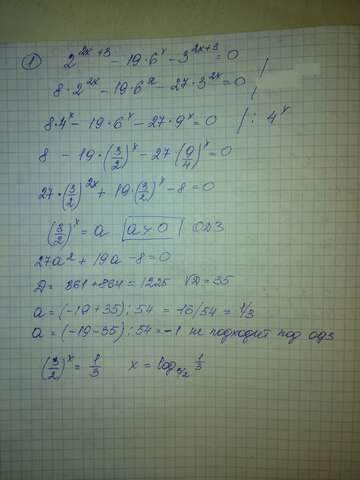 ① 2^(2x+3) - 19·6^x - 3^(2x+3) = 0 /
8·2^(2x) - 19·6^x - 27·3^(2x) = 0 /
8·4^x - 19·6^x - 27·9^x = 0 | : 4^x
8 - 19·(3/2)^x - 27·(9/4)^x = 0
27·(3/2)^(2x) + 19·(3/2)^x - 8 = 0
(3/2)^x = a |a > 0| ОДЗ
27a² + 19a - 8 = 0
D = 361 + 864 = 1225 √D = 35
a = (-19+35) : 54 = 16/54 = 1/3
a = (-19-35) : 54 = -1 не подходит под одз
(3/2)^x = 1/3 x = log_(3/2) 1/3